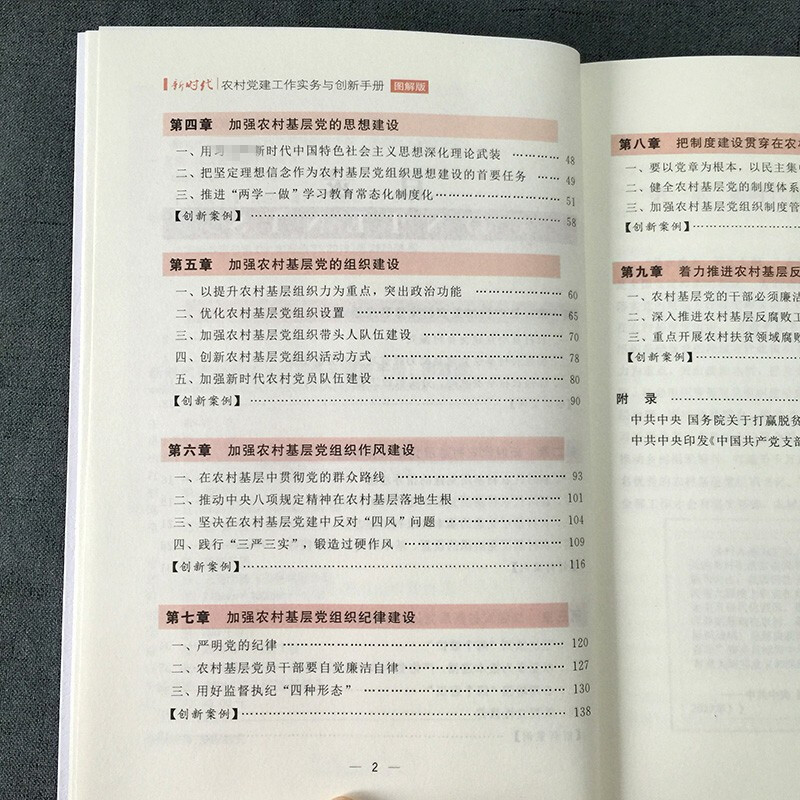 新时代 农村党建工作实务与创新手册 图解版
第四章 加强农村基层党的思想建设
一、用习 新时代中国特色社会主义思想深化理论武装 …… 48
二、把坚定理想信念作为农村基层党组织思想建设的首要任务 …… 49
三、推进“两学一做”学习教育常态化制度化 …… 51
【创新案例】 …… 58
第五章 加强农村基层党的组织建设
一、以提升农村基层组织力为重点，突出政治功能 …… 60
二、优化农村基层党组织设置 …… 65
三、加强农村基层党组织带头人队伍建设 …… 70
四、创新农村基层党组织活动方式 …… 78
五、加强新时代农村党员队伍建设 …… 80
【创新案例】 …… 90
第六章 加强农村基层党组织作风建设
一、在农村基层中贯彻党的群众路线 …… 93
二、推动中央八项规定精神在农村基层落地生根 …… 101
三、坚决在农村基层党建中反对“四风”问题 …… 104
四、践行“三严三实”，锻造过硬作风 …… 109
【创新案例】 …… 116
第七章 加强农村基层党组织纪律建设
一、严明党的纪律 …… 120
二、农村基层党员干部要自觉廉洁自律 …… 127
三、用好监督执纪“四种形态” …… 130
【创新案例】 …… 138
— 2 —
第八章 把制度建设贯穿在农
一、要以党章为根本，以民主集中
二、健全农村基层党的制度体系
三、加强农村基层党组织制度管
【创新案例】 ……
第九章 着力推进农村基层反
一、农村基层党的干部必须廉洁
二、深入推进农村基层反腐败工
三、重点开展农村扶贫领域腐败
【创新案例】 ……
附 录 ……
中共中央 国务院关于打赢脱贫
中共中央印发《中国共产党支部